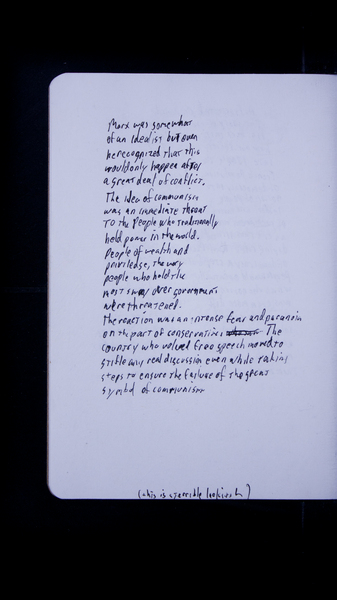 Marx was somewhat
of an idealist but even
he recognized that this
would only happen after
a great deal of conflict.
The idea of communism
was an immediate threat
to the people who traditionally
held power in the world.
People of wealth and
priviledge, the very
people who held the
most sway over governments
were threatened.
the reaction was an intense fear and paranoia
on the part of conservatives The
country who valued free speech moved to
stifle any real discussion even while taking
steps to ensure the failure of the great
symbol of communism
(this is terrible